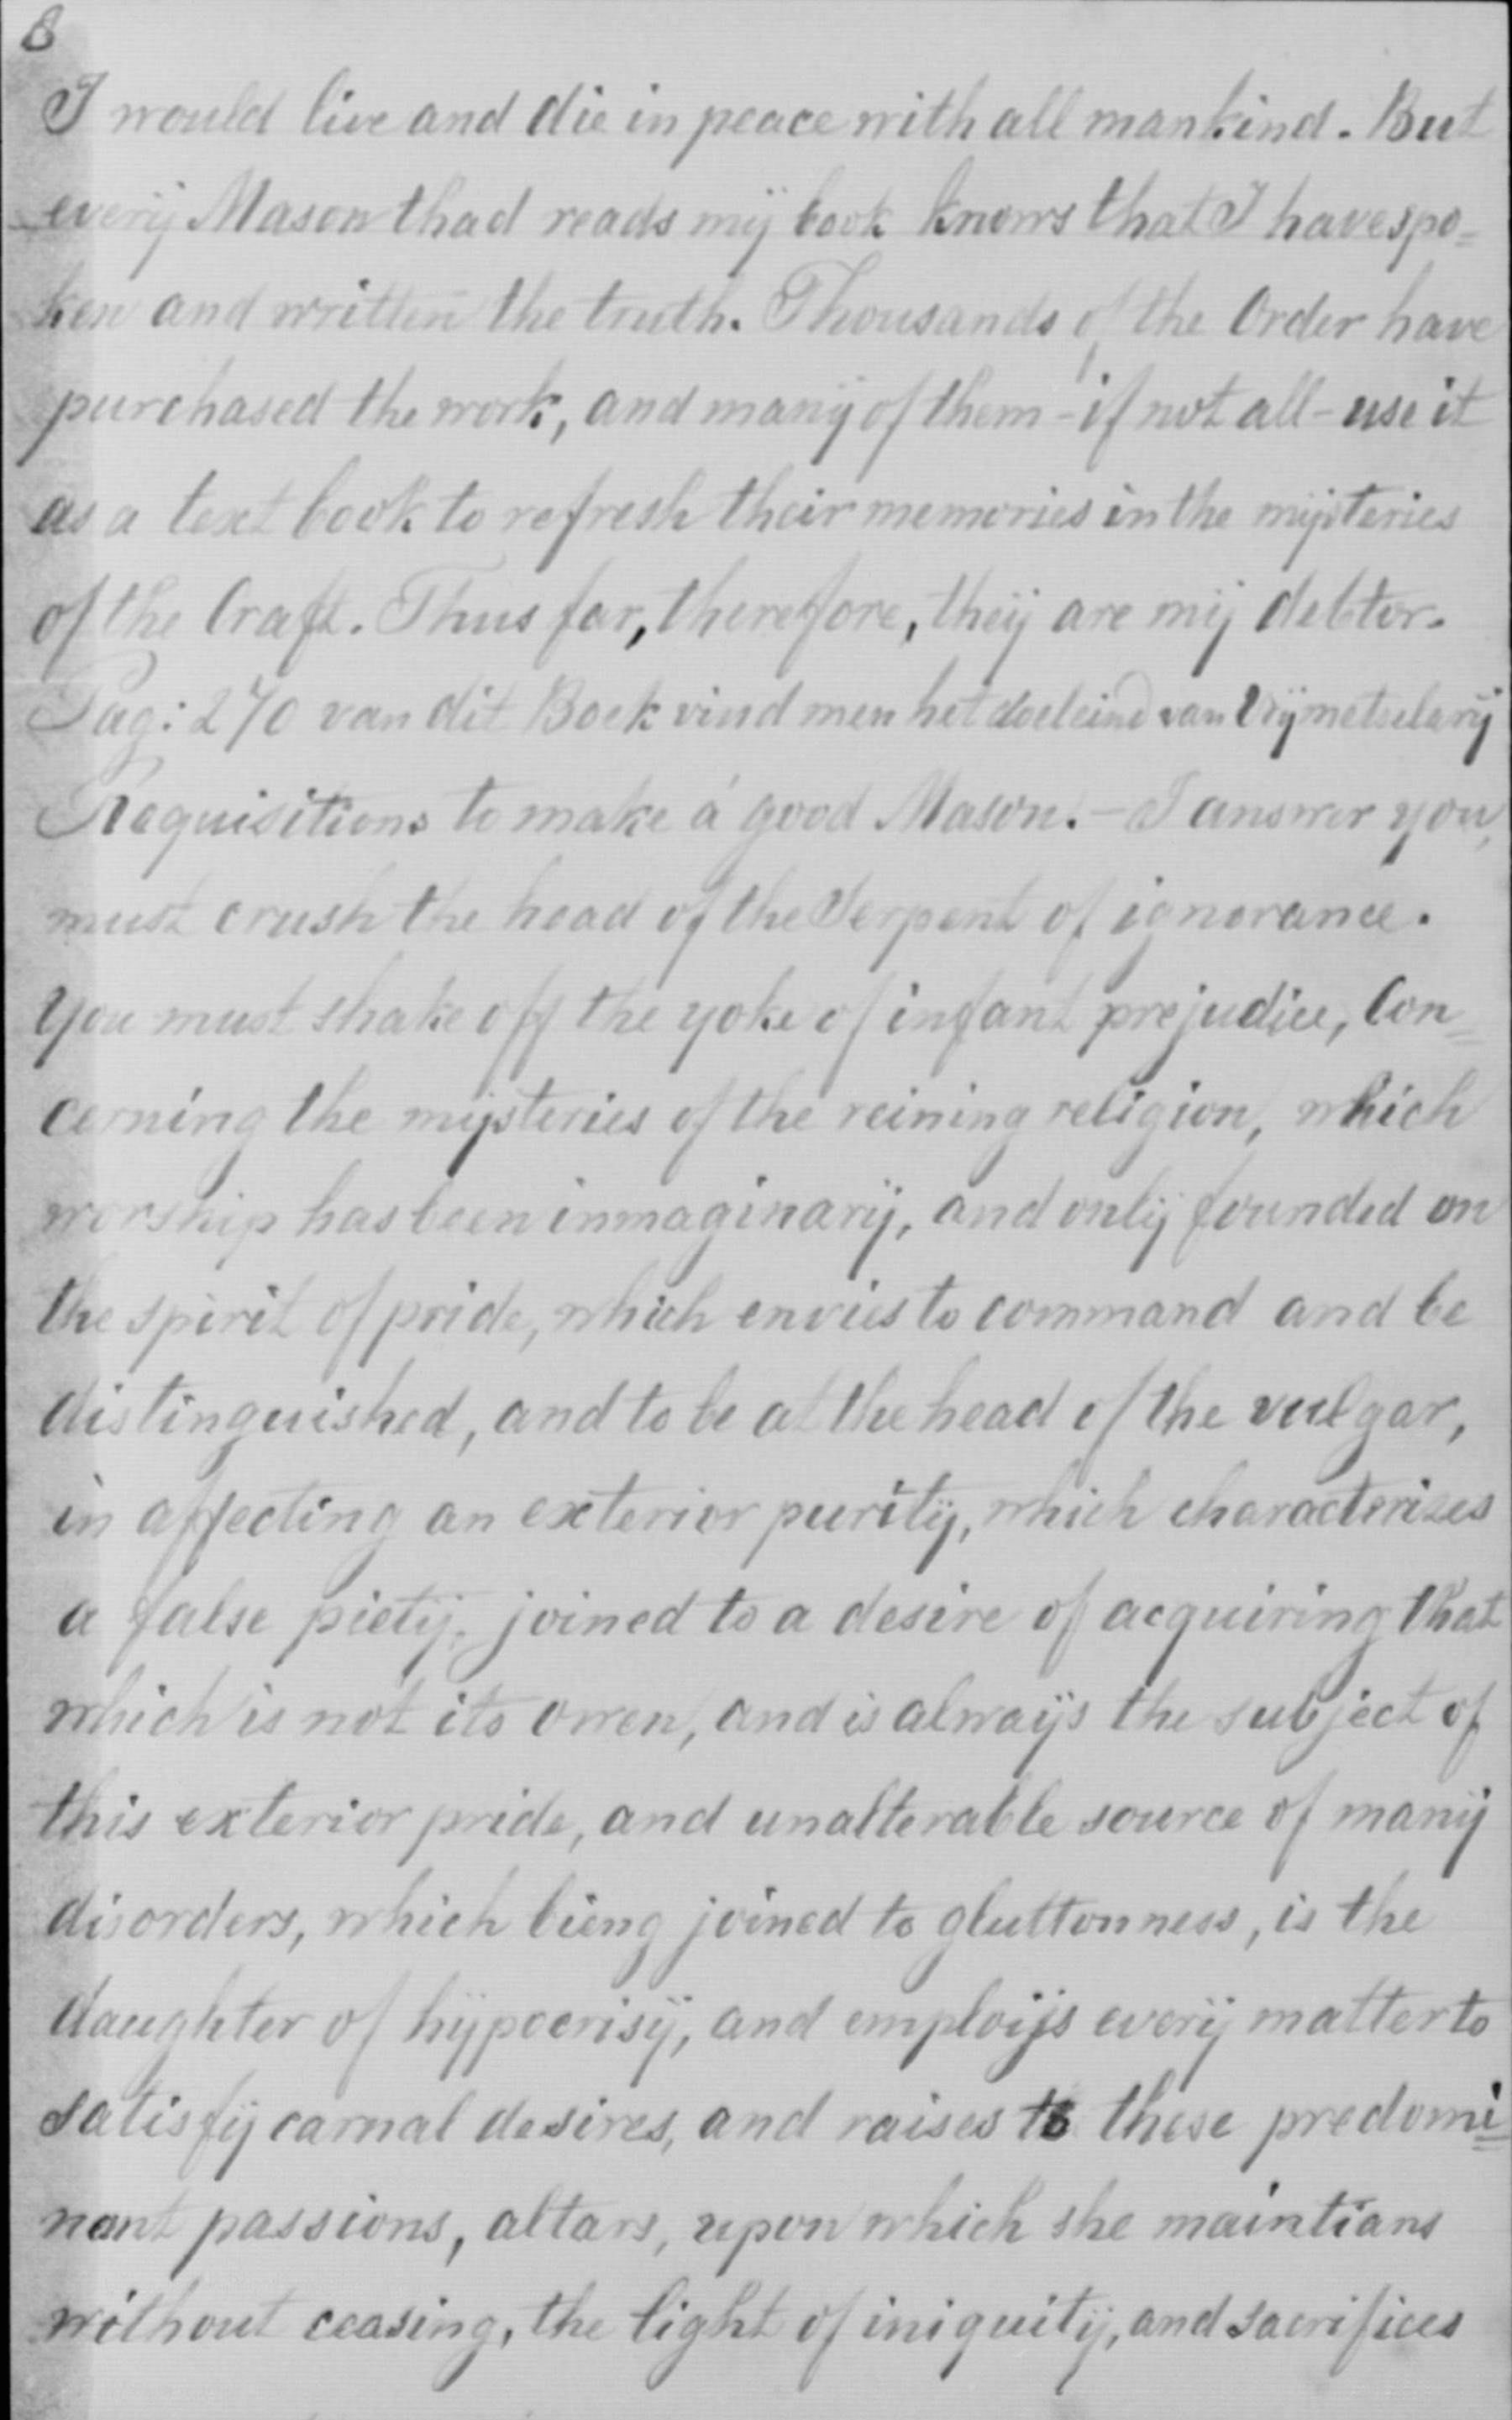 8
I would live and die in peace with all mankind. But
everij Mason thad reads mij book knows that I have spo=
ken and written the truth. Thousands of the Order have
purchased the work, and manij of them - if not all - use it
as a text book to refresh their memories in the mijsteries
of the Craft. Thus far, therefore, theij are mij debtor.
Pag: 270 van dit Boek vind men het doeleind van Vrijmetselarij
Requisitions to make a good Mason. - I answer you,
must crush the head of the Serpent of ignorance.
You must shake off the yoke of infant prejudice, Con=
cerning the mijsteries of the reining religion, which
worship has been inmaginarij, and onlij founded on
the spirit of pride, which envies to command and be
distinguished, and to be at the head of the vulgar,
in affecting an exterior puritij, which characterizes
a false pietij, joined to a desire of acquiring that
which is not its owen, and is alwaijs the subject of
this exterior pride, and unalterable source of manij
disorders, which bieng joined to gluttonness, is the
daughter of hijpocrisij, and emploijs everij matter to
satisfij carnal desires, and raises to these predomi=
nant passions, altars, upon which she maintians
without ceasing, the light of iniquitij, and sacrifices